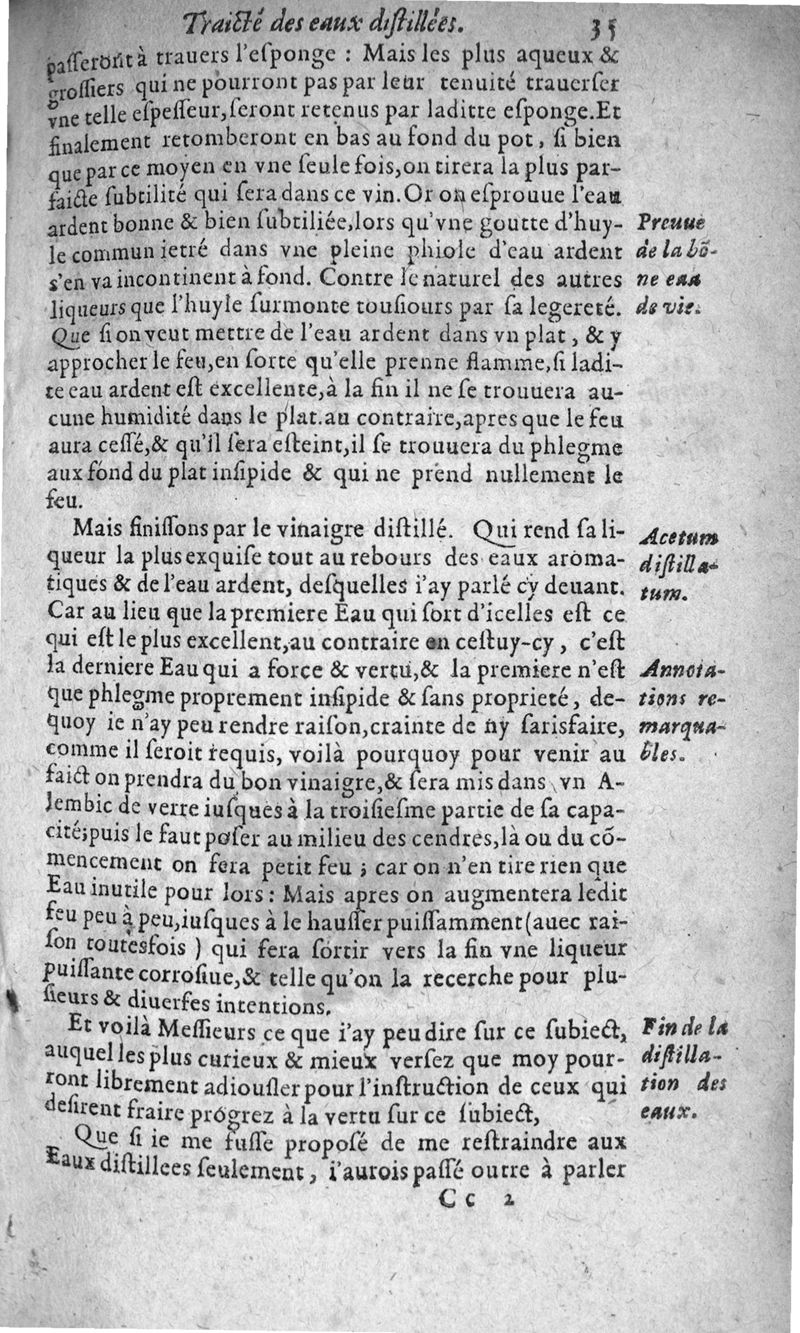 Traicté des eaux diſtillées. 35
paſſeront à trauers l'eſponge : Mais les plus aqueux &
groſſiers qui ne pourront pas par leur tenuité trauerſer
vne telle eſpeſſeur, ſeront retenus par laditte eſponge. Et
finalement retomberont en bas au fond du pot, ſi bien
que par ce moyen en vne ſeule fois, on tirera la plus par-
faicte ſubtilité qui ſera dans ce vin. Or on eſprouue l'eau
ardent bonne & bien ſubtiliée, lors qu'vne goutte d'huy-
le commun ietré dans vne pleine phiole d'eau ardent
s'en va incontinent à fond. Contre le naturel des autres
liqueurs que l'huyle ſurmonte touſiours par ſa legereté.
Preuue
de la bõ-
ne eau
de vie.
Que ſi on veut mettre de l'eau ardent dans vn plat, & y
approcher le feu, en ſorte qu'elle prenne flamme, ſi ladi-
te eau ardent eſt excellente, à la fin il ne ſe trouuera au-
cune humidité dans le plat. au contraire, apres que le feu
aura ceſſé, & qu'il ſera eſteint, il ſe trouuera du phlegme
aux fond du plat inſipide & qui ne prend nullement le
feu.
Mais finiſſons par le vinaigre diſtillé. Qui rend ſa li-
queur la plus exquiſe tout au rebours des eaux aroma-
tiques & de l'eau ardent, deſquelles i'ay parlé cy deuant.
Acetum
diſtilla-
tum.
Car au lieu que la premiere Eau qui ſort d'icelles eſt ce
qui eſt le plus excellent, au contraire en ceſtuy-cy, c'eſt
la derniere Eau qui a force & vertu, & la premiere n'eſt
que phlegme proprement inſipide & ſans proprieté, de-
quoy ie n'ay peu rendre raiſon, crainte de n'y ſarisfaire,
comme il ſeroit requis, voilà pourquoy pour venir au
Annota-
tions re-
marqua-
bles.
faict on prendra du bon vinaigre, & ſera mis dans vn A-
lembic de verre iuſques à la troiſieſme partie de ſa capa-
cité; puis le faut poſer au milieu des cendres, là ou du cõ-
mencement on fera petit feu ; car on n'en tire rien que
Eau inutile pour lors : Mais apres on augmentera ledit
feu peu à peu, iuſques à le hauſſer puiſſamment (auec rai-
ſon toutesfois ) qui fera ſortir vers la fin vne liqueur
puiſſante corroſiue, & telle qu'on la recerche pour plu-
ſieurs & diuerſes intentions.
Et voilà Meſſieurs ce que i'ay peu dire ſur ce ſubiect,
auquel les plus curieux & mieux verſez que moy pour-
ront librement adiouſter pour l'inſtruction de ceux qui
deſirent fraire progrez à la vertu ſur ce ſubiect,
Fin de la
diſtilla-
tion des
eaux.
Que ſi ie me fuſſe propoſé de me reſtraindre aux
Eaux diſtillees ſeulement, i'aurois paſſé outre à parler
Cc 2